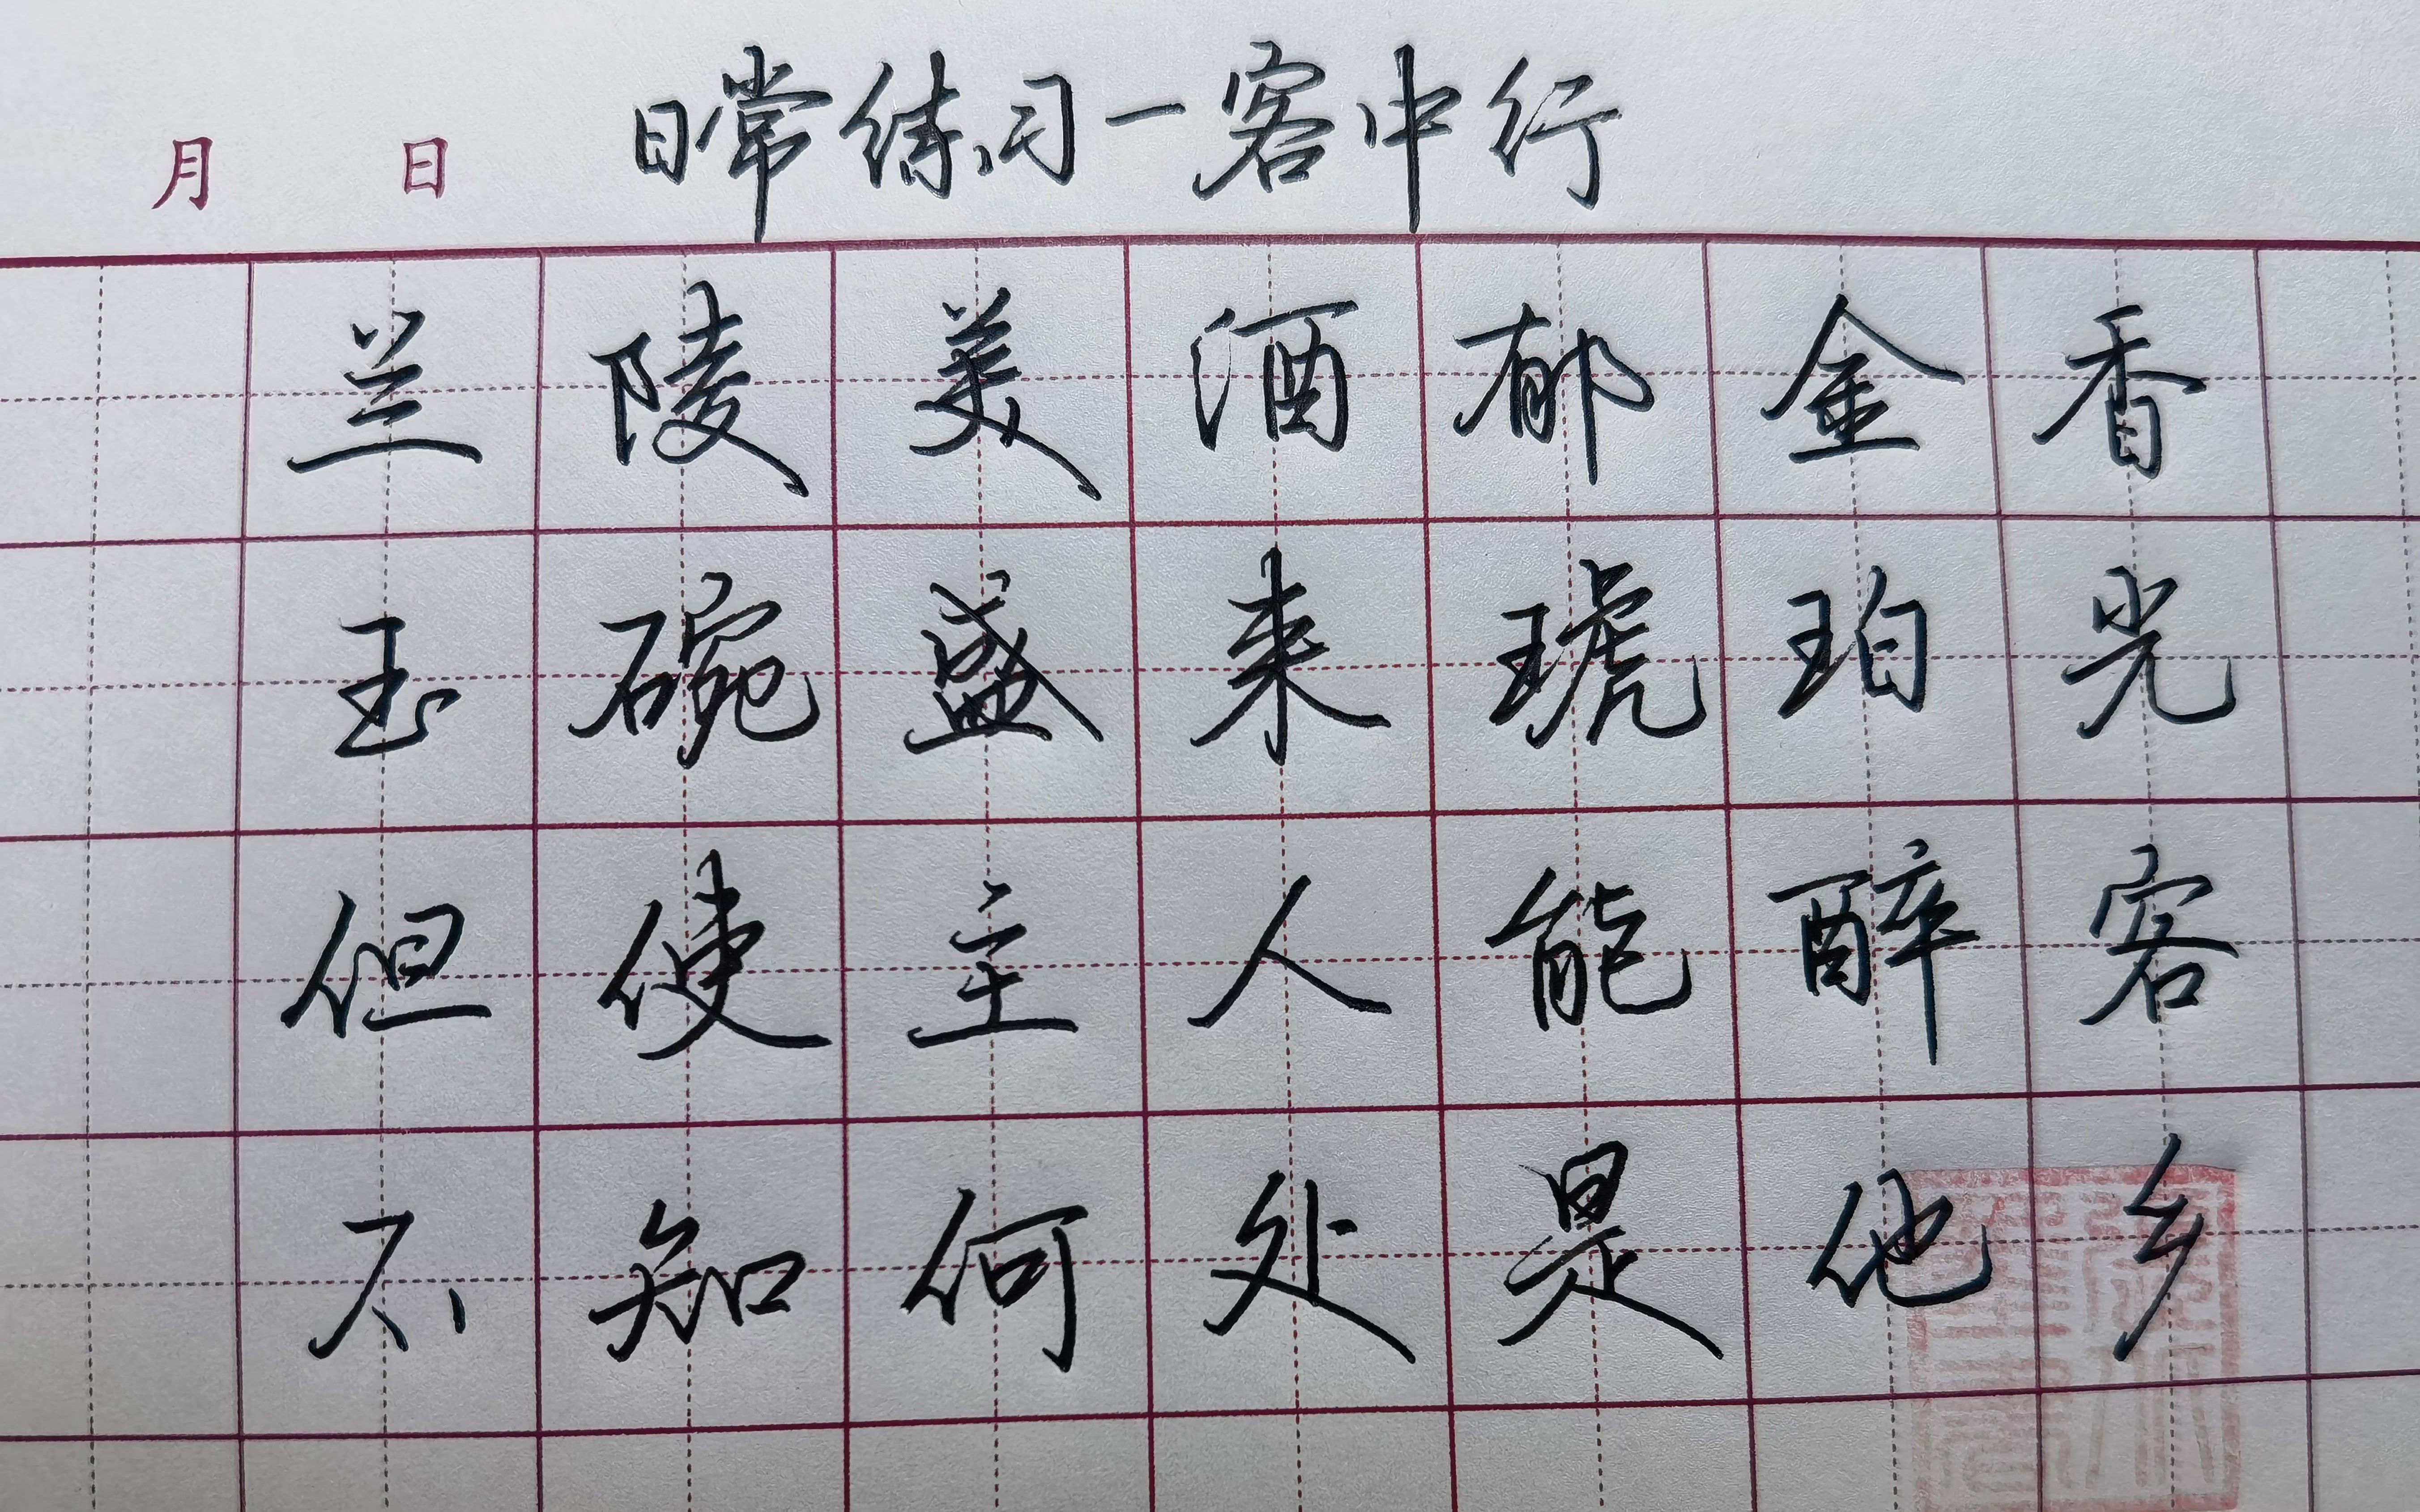 月 日 日常练习一客中行
兰陵美酒郁金香
玉碗盛来琥珀光
但使主人能醉客
不知何处是他乡